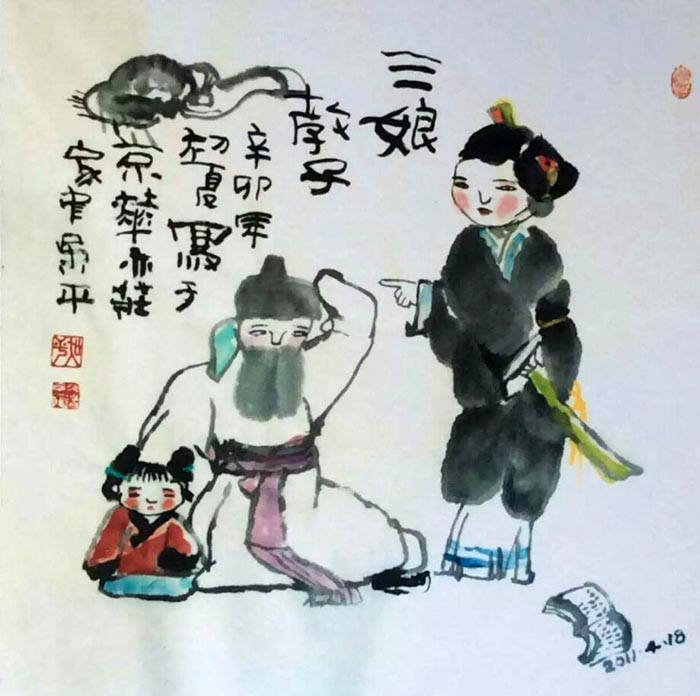 三娘
教子
辛卯年
初夏寫于
京華亦莊
2011.4.18